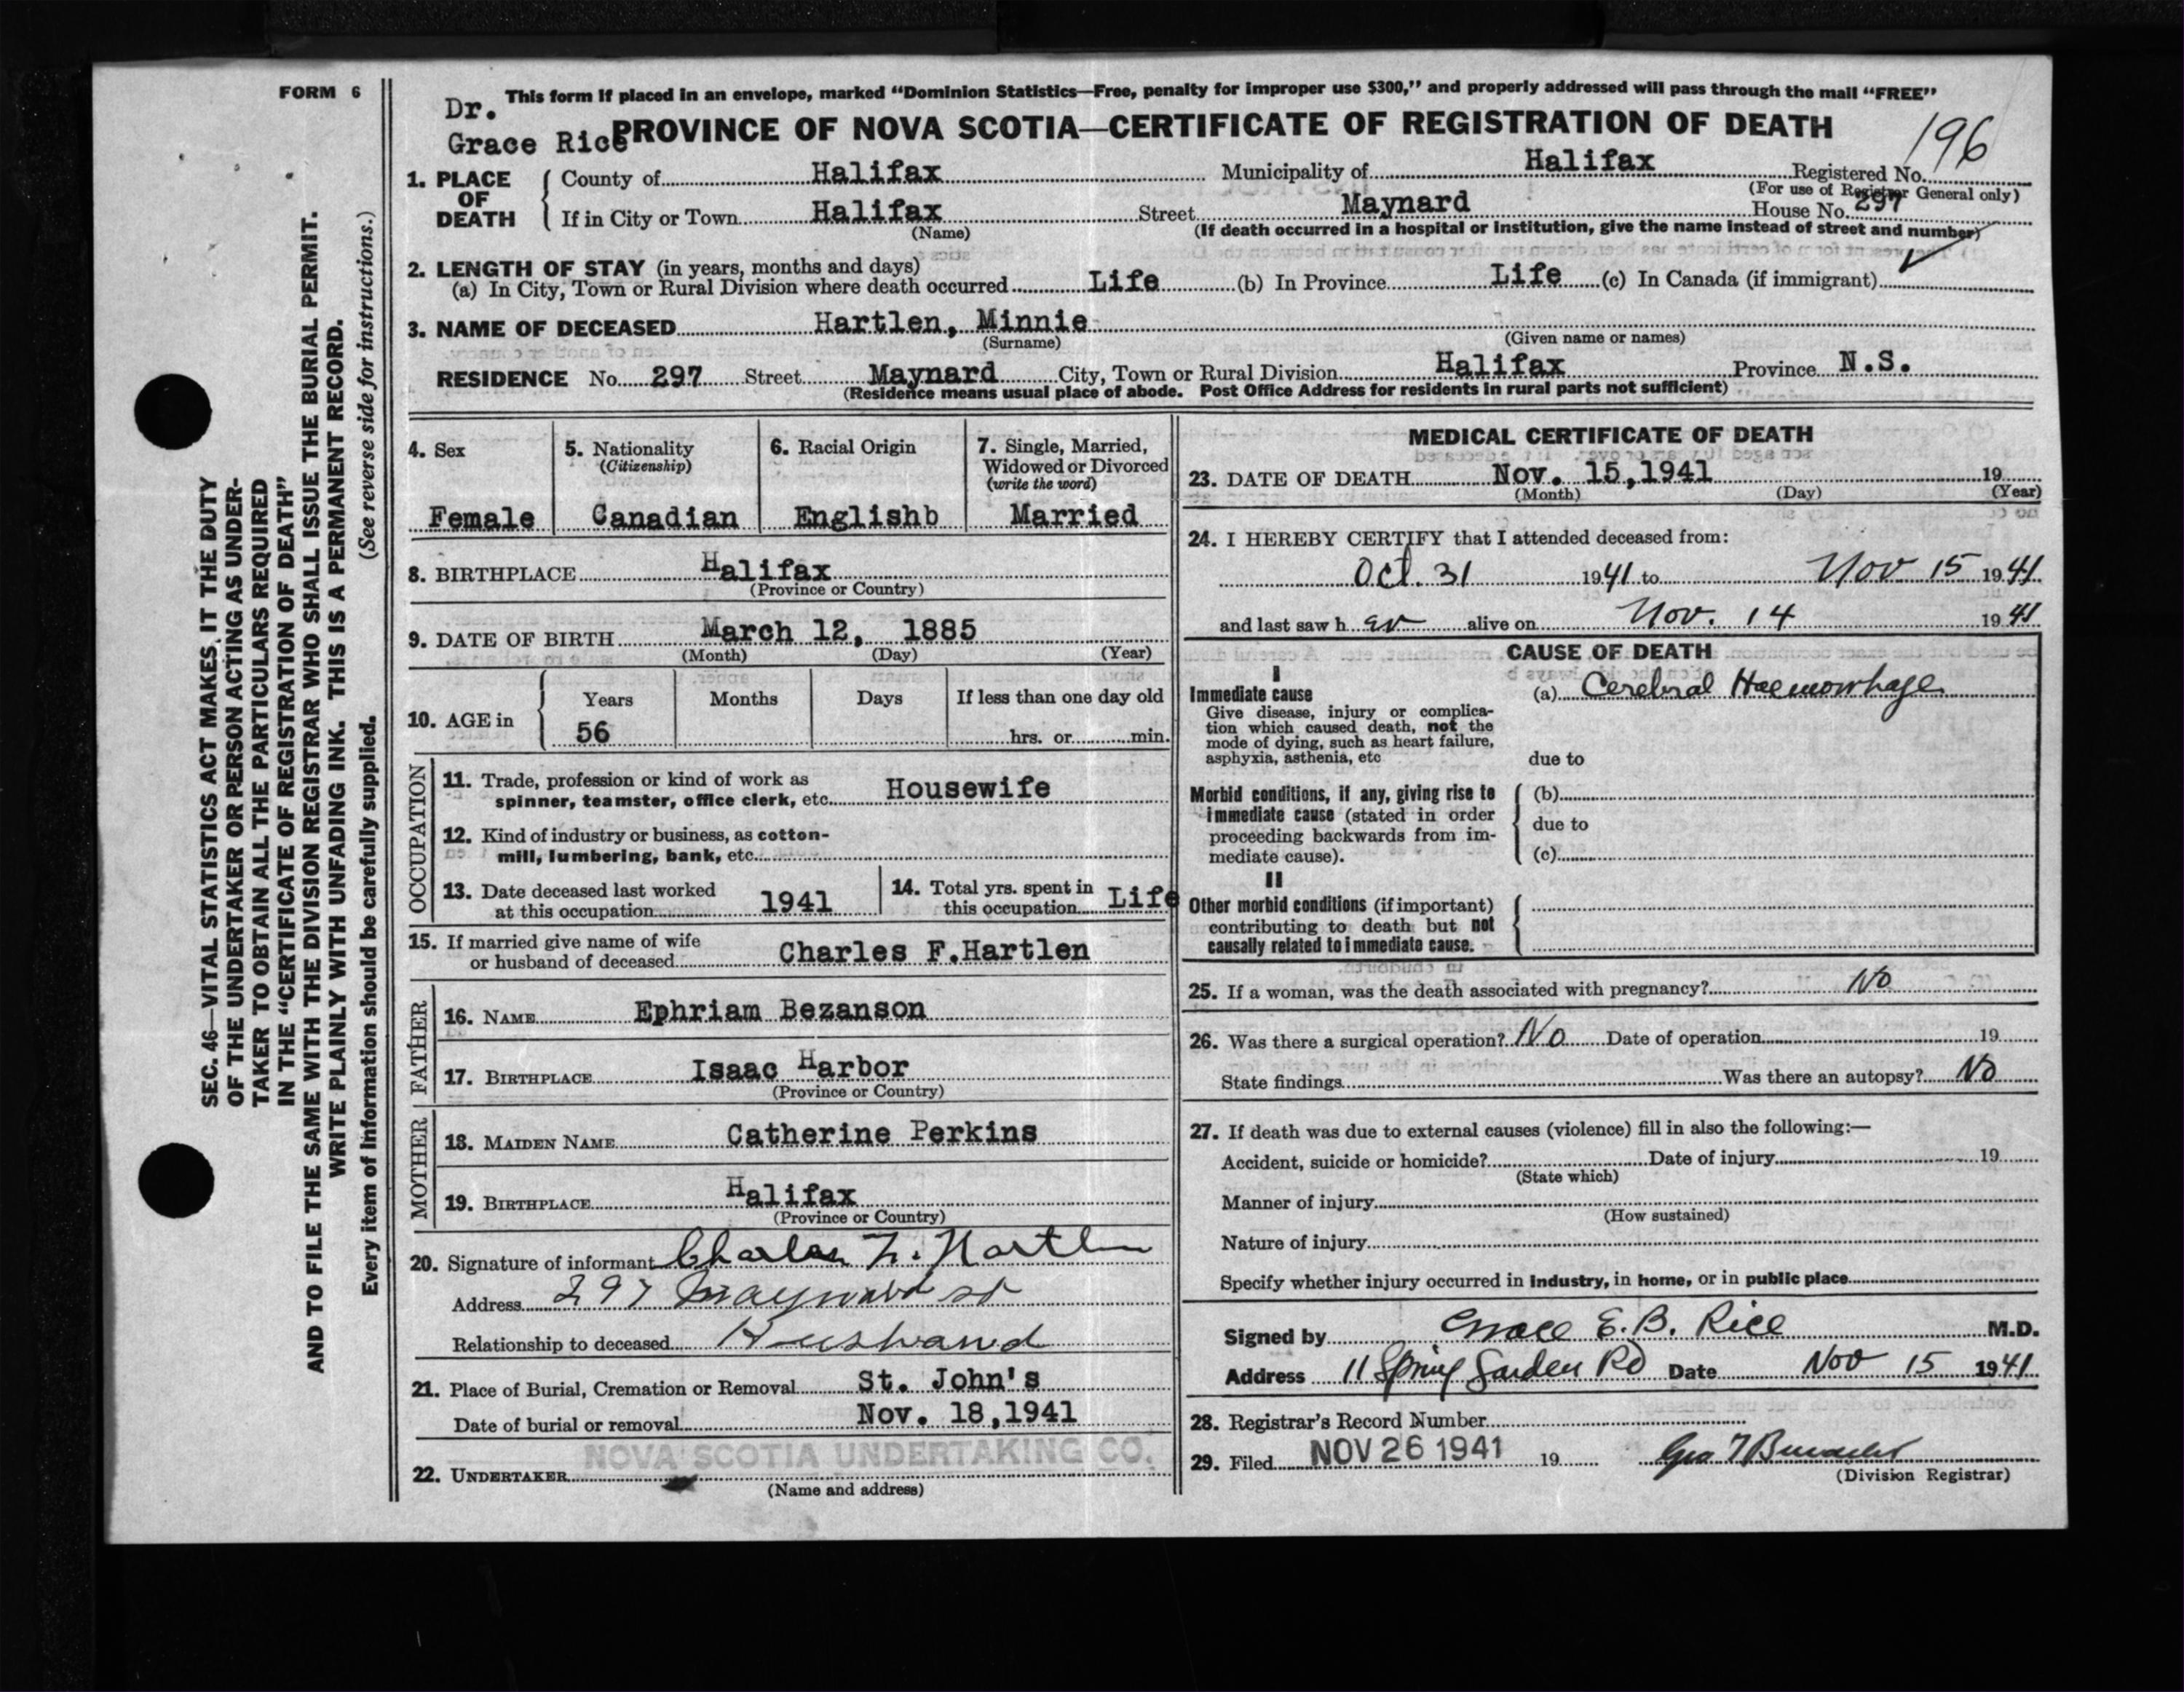 FORM 6
SEC. 46—VITAL STATISTICS ACT MAKES IT THE DUTY
OF THE UNDERTAKER OR PERSON ACTING AS UNDER-
TAKER TO OBTAIN ALL THE PARTICULARS REQUIRED
IN THE "CERTIFICATE OF REGISTRATION OF DEATH"
AND TO FILE THE SAME WITH THE DIVISION REGISTRAR WHO SHALL ISSUE THE BURIAL PERMIT.
WRITE PLAINLY WITH UNFADING INK. THIS IS A PERMANENT RECORD.
Every item of information should be carefully supplied. (See reverse side for instructions.)
This form if placed in an envelope, marked "Dominion Statistics—Free, penalty for improper use $300," and properly addressed will pass through the mail "FREE"
Dr.
Grace Rice
PROVINCE OF NOVA SCOTIA—CERTIFICATE OF REGISTRATION OF DEATH
196
1. PLACE OF DEATH
County of Halifax Municipality of Halifax Registered No.
(For use of Registrar General only)
If in City or Town Halifax Street Maynard House No. 297
(Name) (If death occurred in a hospital or institution, give the name instead of street and number)
2. LENGTH OF STAY (in years, months and days)
(a) In City, Town or Rural Division where death occurred Life (b) In Province Life (c) In Canada (if immigrant)
3. NAME OF DECEASED Hartlen, Minnie
(Surname) (Given name or names)
RESIDENCE No. 297 Street Maynard City, Town or Rural Division Halifax Province N.S.
(Residence means usual place of abode. Post Office Address for residents in rural parts not sufficient)
4. Sex
Female
5. Nationality
(Citizenship)
Canadian
6. Racial Origin
Englishb
7. Single, Married,
Widowed or Divorced
(write the word)
Married
8. BIRTHPLACE Halifax
(Province or Country)
9. DATE OF BIRTH March 12, 1885
(Month) (Day) (Year)
10. AGE in
Years Months Days If less than one day old
56 hrs. or min.
OCCUPATION
11. Trade, profession or kind of work as
spinner, teamster, office clerk, etc. Housewife
12. Kind of industry or business, as cotton-
mill, lumbering, bank, etc.
13. Date deceased last worked
at this occupation 1941
14. Total yrs. spent in
this occupation Life
15. If married give name of wife
or husband of deceased Charles F.Hartlen
FATHER
16. NAME Ephriam Bezanson
17. BIRTHPLACE Isaac Harbor
(Province or Country)
MOTHER
18. MAIDEN NAME Catherine Perkins
19. BIRTHPLACE Halifax
(Province or Country)
20. Signature of informant Charles F. Hartlen
Address 297 Maynard st
Relationship to deceased Husband
21. Place of Burial, Cremation or Removal St. John's
Date of burial or removal Nov. 18,1941
NOVA SCOTIA UNDERTAKING CO.
22. UNDERTAKER
(Name and address)
MEDICAL CERTIFICATE OF DEATH
23. DATE OF DEATH Nov. 15,1941 19
(Month) (Day) (Year)
24. I HEREBY CERTIFY that I attended deceased from:
Oct. 31 1941 to Nov 15 1941
and last saw h er alive on Nov. 14 1941
CAUSE OF DEATH
I
Immediate cause (a) Cerebral Haemorrhage
Give disease, injury or complica-
tion which caused death, not the
mode of dying, such as heart failure,
asphyxia, asthenia, etc due to
Morbid conditions, if any, giving rise to (b)
immediate cause (stated in order due to
proceeding backwards from im-
mediate cause). (c)
II
Other morbid conditions (if important)
contributing to death but not
causally related to immediate cause.
25. If a woman, was the death associated with pregnancy? No
26. Was there a surgical operation? No Date of operation 19
State findings Was there an autopsy? No
27. If death was due to external causes (violence) fill in also the following:—
Accident, suicide or homicide? Date of injury 19
(State which)
Manner of injury
(How sustained)
Nature of injury
Specify whether injury occurred in industry, in home, or in public place
Signed by Grace E. B. Rice M.D.
Address 11 Spring Garden Rd Date Nov 15 1941
28. Registrar's Record Number
29. Filed NOV 26 1941 19
(Division Registrar)